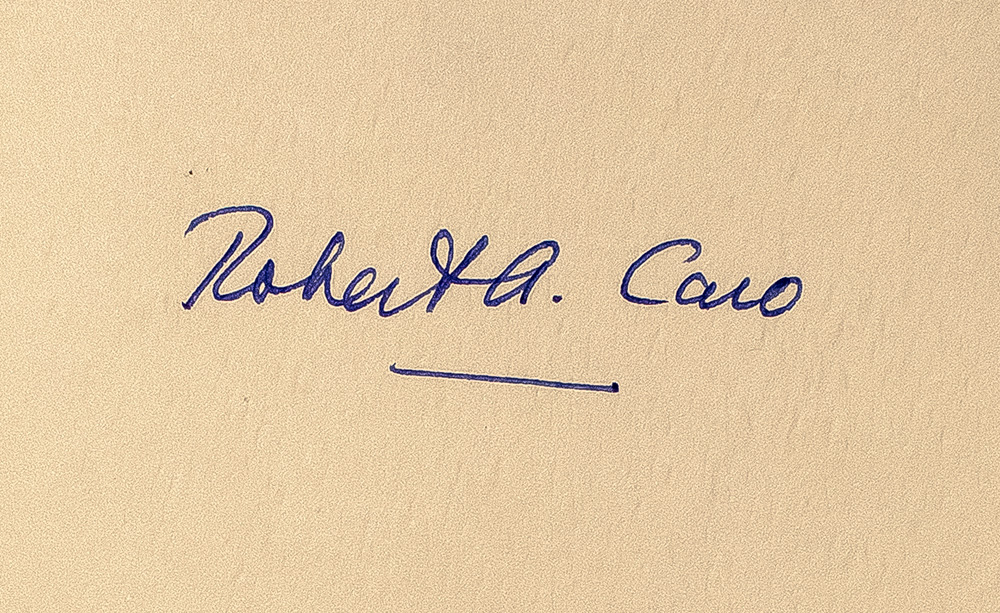 Robert A. Caro